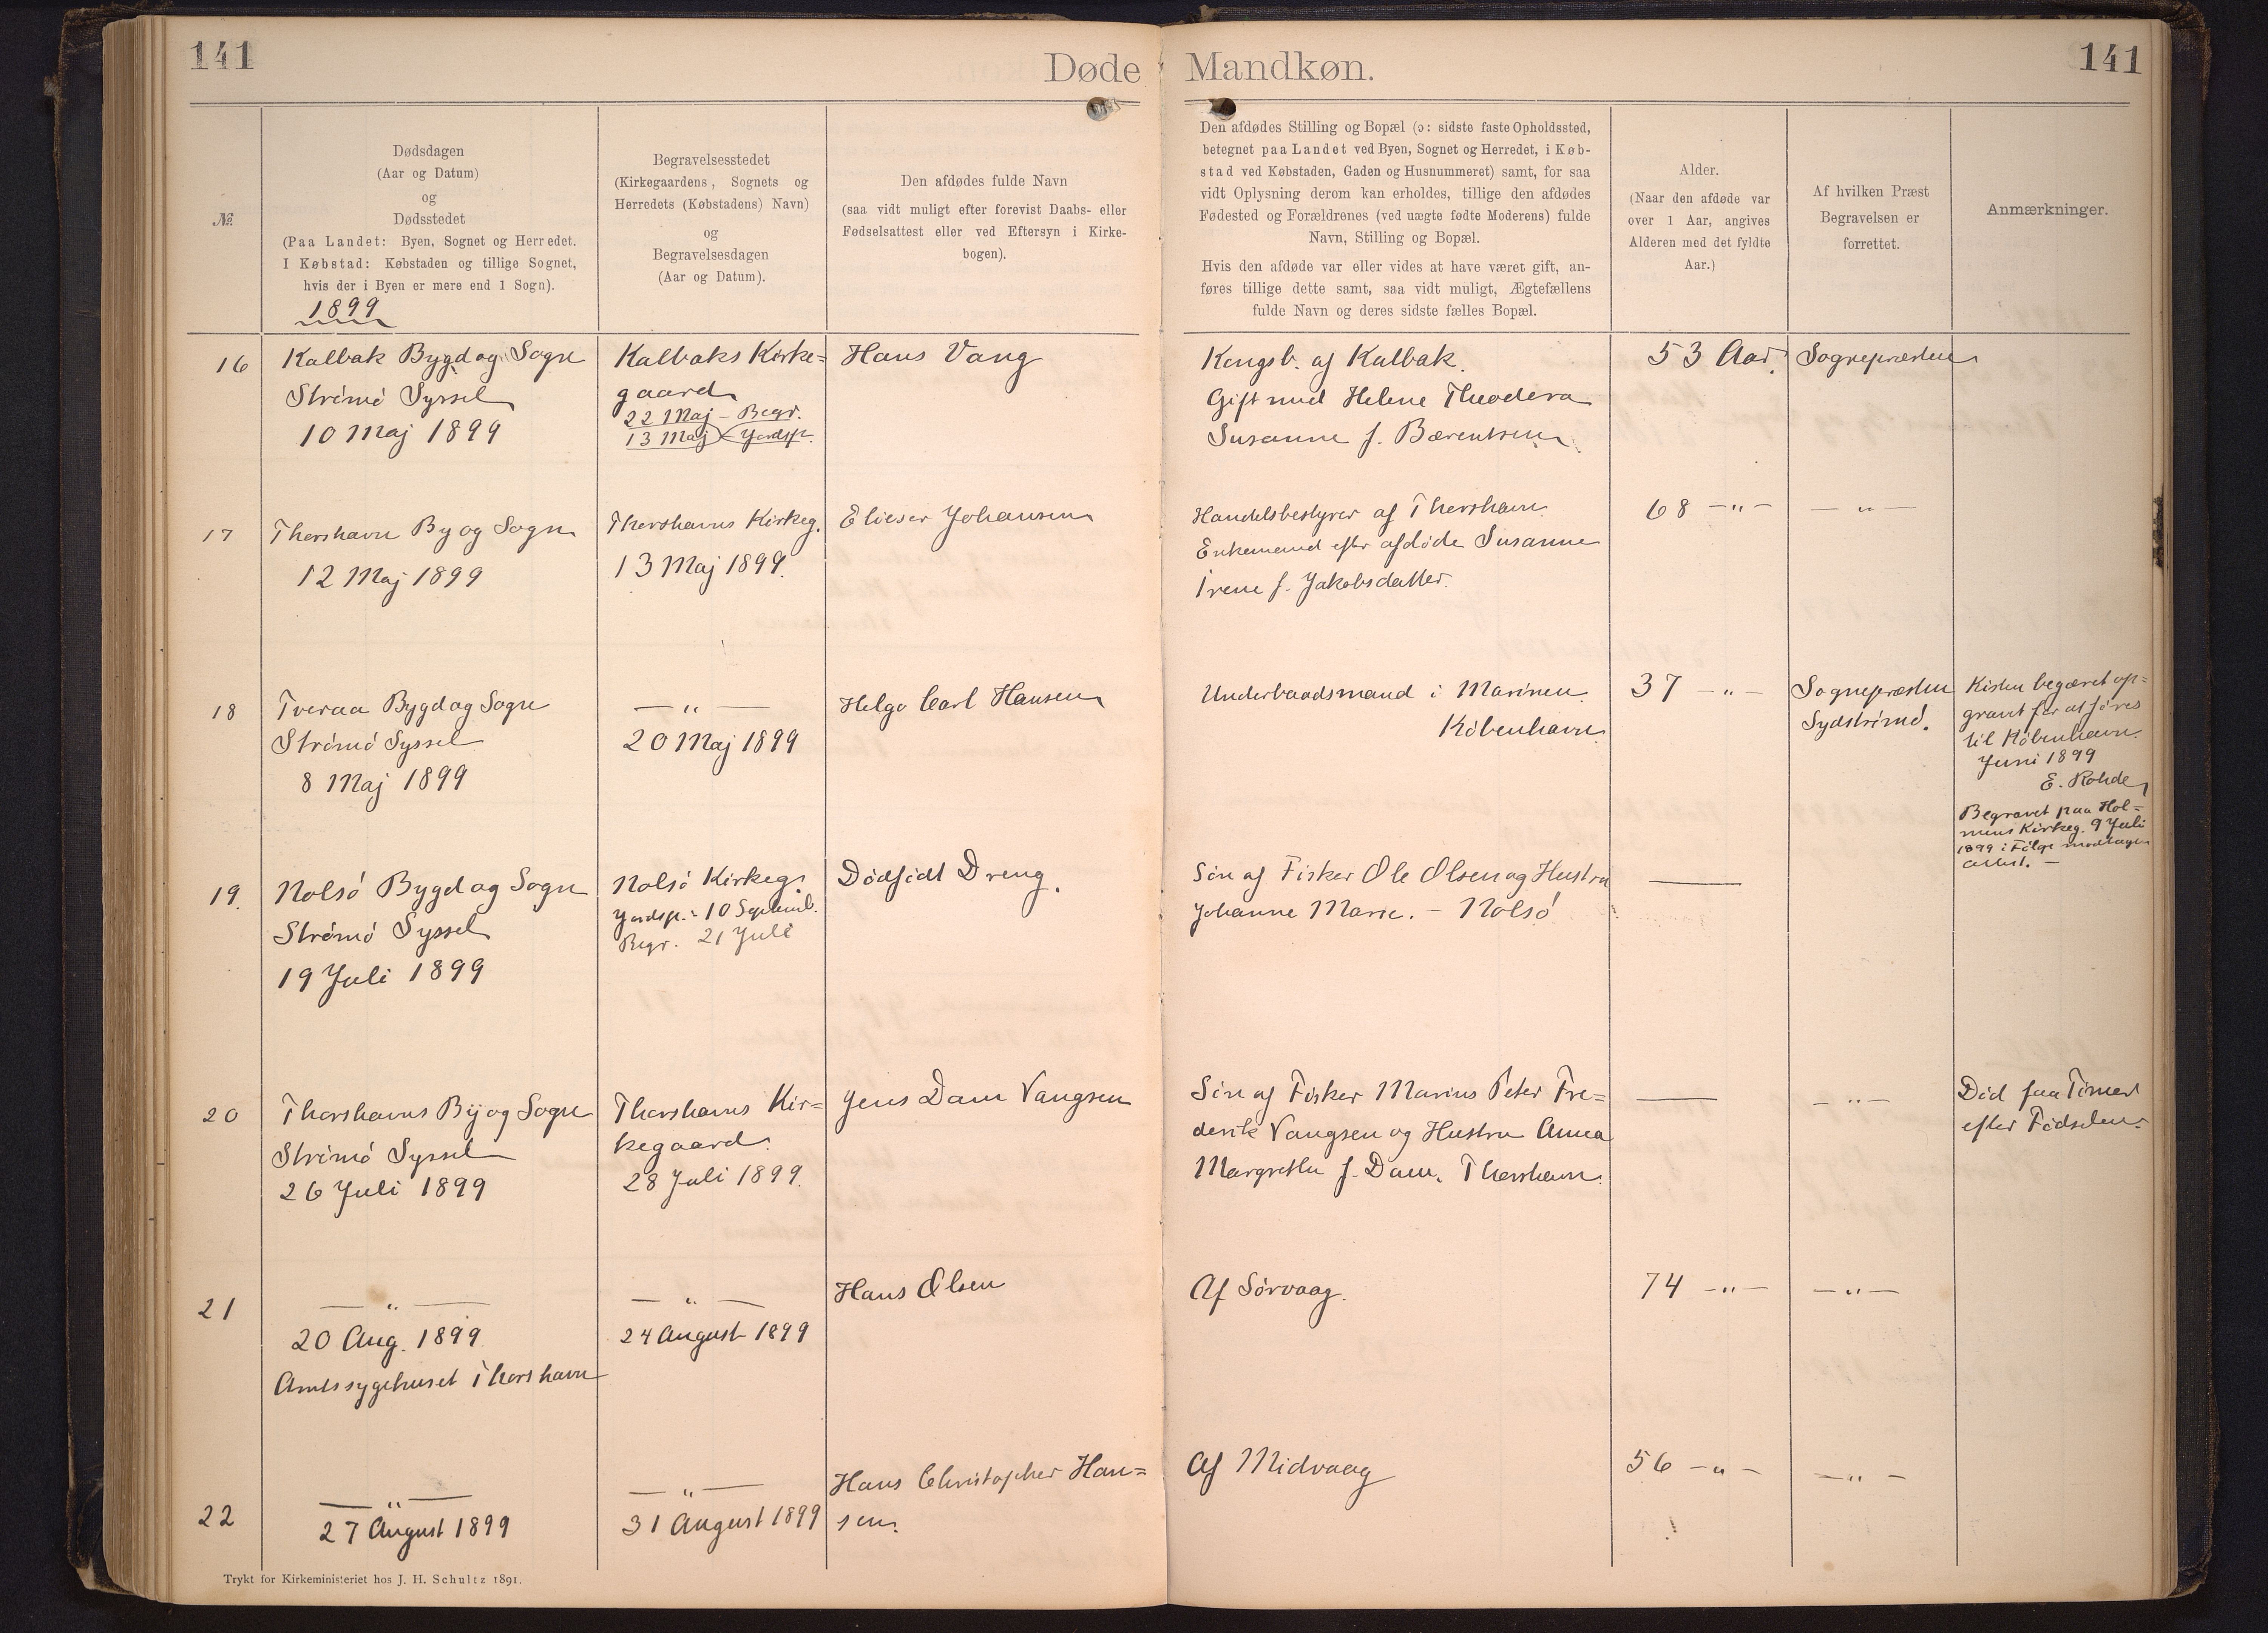 141
Døde Mandkøn.
141
№.
Dødsdagen
(Aar og Datum)
og
Dødsstedet
(Paa Landet: Byen, Sognet og Herredet.
I Købstad: Købstaden og tillige Sognet,
hvis der i Byen er mere end 1 Sogn).
1899
Begravelsesstedet
(Kirkegaardens, Sognets og
Herredets (Købstadens) Navn)
og
Begravelsesdagen
(Aar og Datum).
Den afdødes fulde Navn
(saa vidt muligt efter forevist Daabs- eller
Fødselsattest eller ved Eftersyn i Kirke-
bogen).
Den afdødes Stilling og Bopæl (ɔ: sidste faste Opholdssted,
betegnet paa Landet ved Byen, Sognet og Herredet, i Køb-
stad ved Købstaden, Gaden og Husnummeret) samt, for saa
vidt Oplysning derom kan erholdes, tillige den afdødes
Fødested og Forældrenes (ved uægte fødte Moderens) fulde
Navn, Stilling og Bopæl.
Hvis den afdøde var eller vides at have været gift, an-
føres tillige dette samt, saa vidt muligt, Ægtefællens
fulde Navn og deres sidste fælles Bopæl.
Alder.
(Naar den afdøde var
over 1 Aar, angives
Alderen med det fyldte
Aar.)
Af hvilken Præst
Begravelsen er
forrettet.
Anmærkninger.
16
Kalbak Bygd og Sogn
Strømø Syssel
10 Maj 1899
Kalbaks Kirke=
gaard
22 Maj - Begr.
13 Maj - Jordsp.
Hans Vang
Kongsb. af Kalbak.
Gift med Helene Theodora
Susanne f. Bærentsen
53 Aar.
Sognepræsten
17
Thorshavn By og Sogn
12 Maj 1899
Thorshavns Kirkeg.
13 Maj 1899.
Elieser Johansen
Handelsbestyrer af Thorshavn
Enkemand efter afdøde Susanne
Irene f. Jakobsdatter.
68 -"-
-"-
18
Tveraa Bygd og Sogn
Strømø Syssel
8 Maj 1899
-"-
20 Maj 1899
Helge Carl Hansen
Underbaadsmand i Marinen
København.
37 -"-
Sognepræsten
Sydstrømø.
Kisten begæret op=
gravet for at føres
til København.
Juni 1899
E. Rohde
Begravet paa Hol=
mens Kirkeg. 9 Juli
1899 i Følge modtagen
Attest. -
19.
Nolsø Bygd og Sogn
Strømø Syssel
19 Juli 1899
Nolsø Kirkeg.
Jordsp. : 10 Septemb.
Begr. 21 Juli
Dødfødt Dreng.
Søn af Fisker Ole Olsen og Hustru
Johanne Marie. - Nolsø
—
20
Thorshavns By og Sogn
Strømø Syssel
26 Juli 1899
Thorshavns Kir=
kegaard.
28 Juli 1899.
Jens Dam Vangsen
Søn af Fisker Marius Peter Fre=
derik Vangsen og Hustru Anna
Margrethe f. Dam. Thorshavn.
—
-"-
Død faa Timer
efter Fødselen.
21
-"-
20 Aug. 1899
Amtssygehuset Thorshavn
-"-
24 August 1899
Hans Olsen
Af Sørvaag.
74 -"-
-"-
22
-"-
27 August 1899
-"-
31 August 1899
Hans Christopher Han=
sen.
Af Midvaag
56 -"-
-"-
Trykt for Kirkeministeriet hos J. H. Schultz 1891.